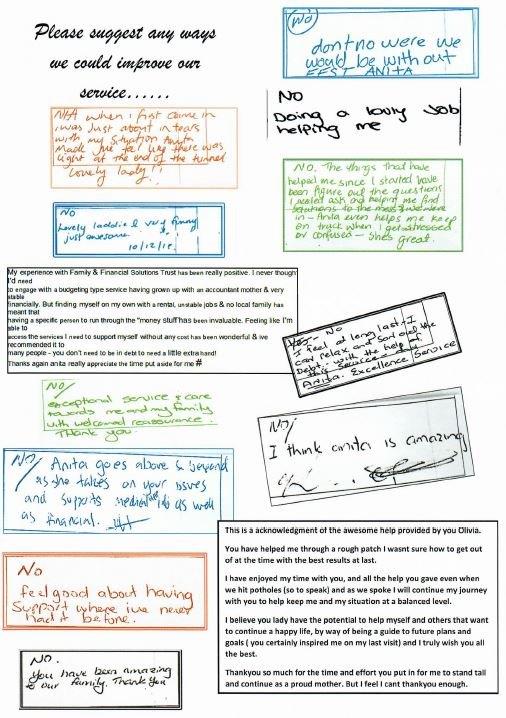 Please suggest any ways
we could improve our
service......
(No)
dont no were we
would be with out
FFST ANITA
NO
Doing a lovly Job
helping me
N/A when i first came in
i was Just about in tears
with my situation Anita
Made me feel like there was
light at the end of the tunnel
Lovely lady!!
NO. The things that have
helped me since I started have
been figure out the questions
I needed ask and helping me find
solutions to the mess we were
in - Anita even helps me keep
on track when I get stressed
or confused - shes great.
NO
Lovely laddie & very funny
just awesome.
10/12/18.
My experience with Family & Financial Solutions Trust has been really positive. I never though
I'd need
to engage with a budgeting type service having grown up with an accountant mother & very
stable
financially. But finding myself on my own with a rental, unstable jobs & no local family has
meant that
having a specific person to run through the "money stuff" has been invaluable. Feeling like I'm
able to
access the services I need to support myself without any cost has been wonderful & ive
recommended it to
many people - you don't need to be in debt to need a little extra hand!
Thanks again anita really appreciate the time put aside for me #
No
I feel at long last I
can relax and sort out the
Debt. with the help of
this service and
Anita. Excellence Service
NO/
exceptional service & care
towards me and my family
with welcomed reassurance.
Thank you.
NO/
I think anita is amazing
NO/ Anita goes above & beyond
as she takes on your issues
and supports medical as well
as financial.
No
feel good about having
support where ive never
had it before.
NO.
You have been amazing
to our family. Thank you
This is a acknowledgment of the awesome help provided by you Olivia.
You have helped me through a rough patch I wasnt sure how to get out
of at the time with the best results at last.
I have enjoyed my time with you, and all the help you gave even when
we hit potholes (so to speak) and as we spoke I will continue my journey
with you to help keep me and my situation at a balanced level.
I believe you lady have the potential to help myself and others that want
to continue a happy life, by way of being a guide to future plans and
goals ( you certainly inspired me on my last visit) and I truly wish you all
the best.
Thankyou so much for the time and effort you put in for me to stand tall
and continue as a proud mother. But I feel I cant thankyou enough.